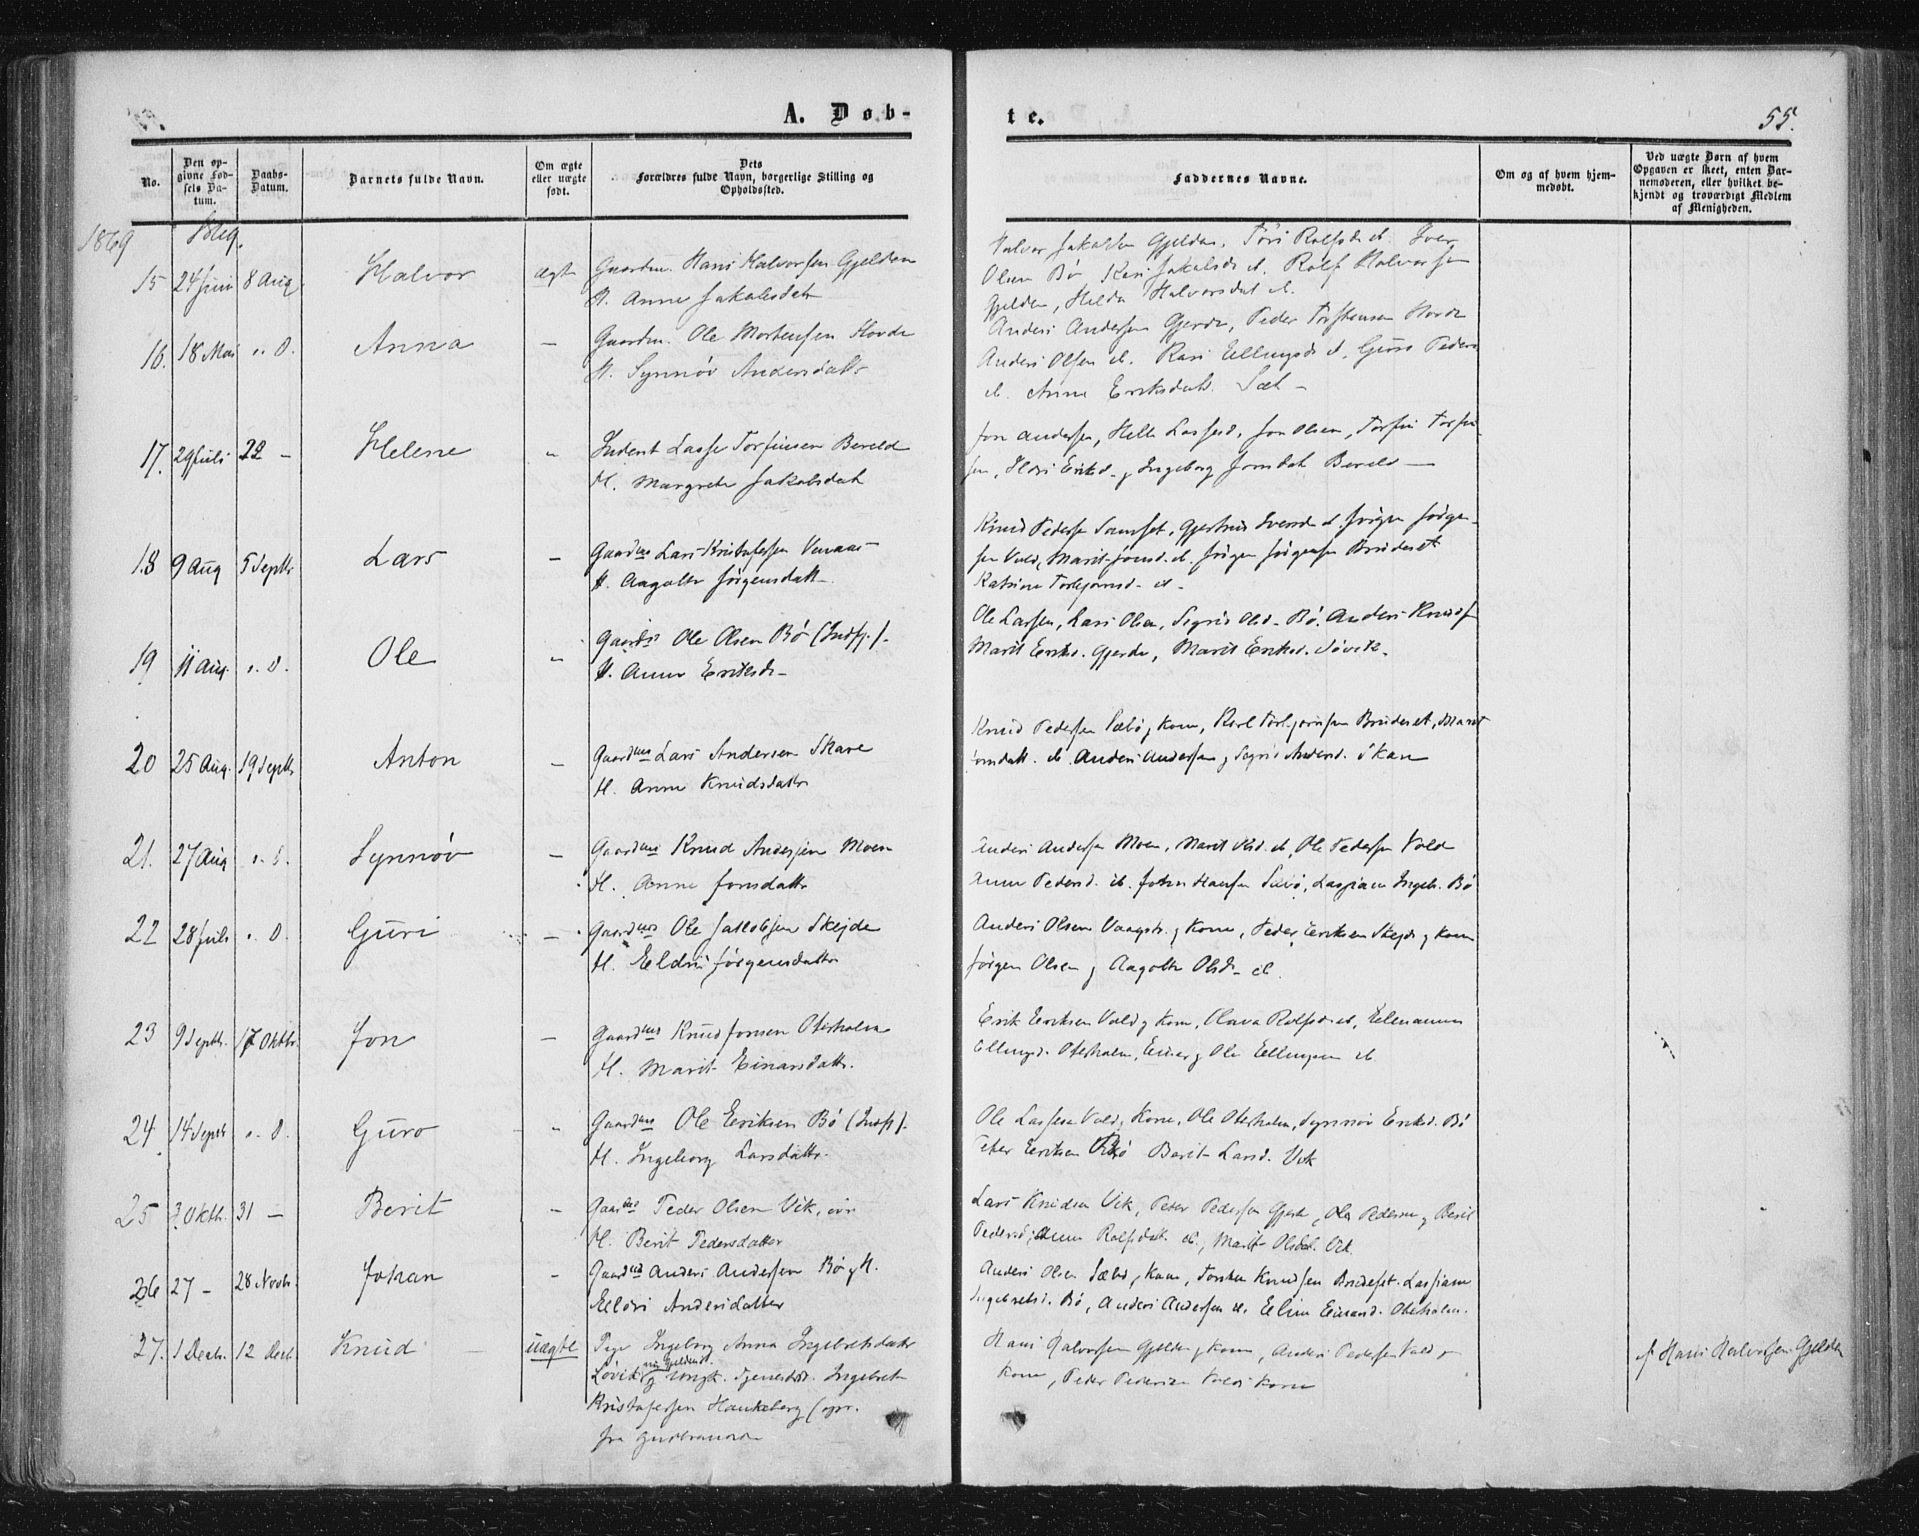 A. Døb-
te.
55.
No.
Den op-
givne Fød-
sels Da-
tum.
Daabs-
Datum.
Barnets fulde Navn.
Om ægte
eller uægte
født.
Dets
Forældres fulde Navn, borgerlige Stilling og
Opholdssted.
Faddernes Navne.
Om og af hvem hjem-
medøbt.
Ved uægte Børn af hvem
Opgaven er skeet, enten Bar-
nemoderen, eller hvilket be-
kjendt og troværdigt Medlem
af Menigheden.
1869
1869.
15 24 Juni 8 Aug Halvor ægte Gaardm. Hans Halvorsen Gjelden
H. Anne Jakobsdatr
Halvor Jakobsen Gjelden, Töri Rolfsd. ib. Iver
Olsen Bø Kari Jakobsd. ib. Rolf Halvorsen
Gjelden, Halvorsdat ib.
16. 18 Mai s. D. Anna — Gaardm. Ole Mortensen Hovde
H. Synnöv Andersdatr
Anders Andersen Gjerde, Peder Torstensen Hovde
Anders Olsen ib. Kari Ellingsd. ib. Guro Peders
ib. Anne Eriksdatr. Sæt —
17. 29 Juli 22 — Helene " Inderst Lasse Torfinsen Bereld
H. Margrete Jakobsdat
Jon Andersen, Jon Olsen, Torfin Torfin-
sen, Eriksd. g Ingeborg Jonsdat
18 9 Aug 5 Septbr Lars — Gaardms Lars Kristofersen
H. Aagolte Jörgensdatr
Knud Peders Gjertrud ib. Jörgen Jörgen-
sen Vold, Marit Jonsd. ib. Jörgen Jörgensen Bruaset
Katrine Torbjörnsd. ib —
19 11 Aug. s. D. Ole " Gaardms Ole Olsen Bø (Indfl.).
H. Anne Eriksd.
Ole Larsen, Lars Olsen, Sigrid Olsd. Bø. Anders Knuds
Marit Eriksd. Gjerde, Marit Eriksd. Lövik.
20 25 Aug. 19 Septbr Anton — Gaardms Lars Andersen Skare
H. Anne Knudsdatr
Knud Pedersen Sæbö g Kone, Karl Torbjörnsen Bruaset, Marit
ib. Anders Andersen g Sigrid Andersd. Skare
21. 27 Aug s. D. Synnöv — Gaardms Knud Andersen Moen
H. Anne Jonsdatr
Anders Andersen Moen, Marit Olsd. ib, Ole Pedersen Vold
Anne Pedersd. ib. Johan Hansen Sæbö, Ingebr. Bø
22 28 Juli s. D. Guri — Gaardms Ole Jakobsen Skejde
H. Eldri Jörgensdatr
Anders Olsen Vaagstr. g Kone, Peder Eriksen Skejde g Kone
Jörgen Olsen g Aagolte Olsd. ib.
23 9 Septbr. 17 Oktbr. Jon — Gaardms Knud Jonsen Oterholm
H. Marit Einarsdatr.
Erik Eriksen Vold g Kone, Olava Rolfsd. ib,
Ellingsd. Oterholm, Einar g Ole Ellingsen ib
24 14 Septbr s. D. Guro " Gaardms Ole Eriksen Bø (Indfl).
H. Ingeborg Larsdatr.
Ole Lassesen Vold g Kone, Ole Oterholm, Synnöv Eriksd. Bø
Peter Eriksen Bø Berit Larsd. Vik
25 3 Oktbr. 31 — Berit — Gaardms Peder Olsen Vik, övr
H. Berit Pedersdatter
Lars Knudsen Vik, Peter Pedersen Gjerde, Ole Pedersen g Berit
Pedersd, Anne Rolfsdat. ib., Marit Olsdat. Vik
26 27 — 28 Novbr. Johan — Gaardms Anders Andersen Bø g H.
Eldri Andersdatter
Anders Olsen Sæbö g Kone, Torsten Knudsen Bruaset.
Ingebretsd. Bø, Anders Andersen ib. Elin Einarsd. Oterholm.
27. 1 Decb. 12 Decb. Knud uægte Pige Ingeborg Anna Ingebretsdatr
Lövik nu Gjelden g ungk. Tjenestkl. Ingebret
Kristofersen Haukeberg (opr.
fra Gudbrandsd
Hans Halvorsen Gjelden g Kone, Anders Pedersen Vold g
Kone, Peder Pedersen Vold g Kone
Af Hans Halvorsen Gjelden